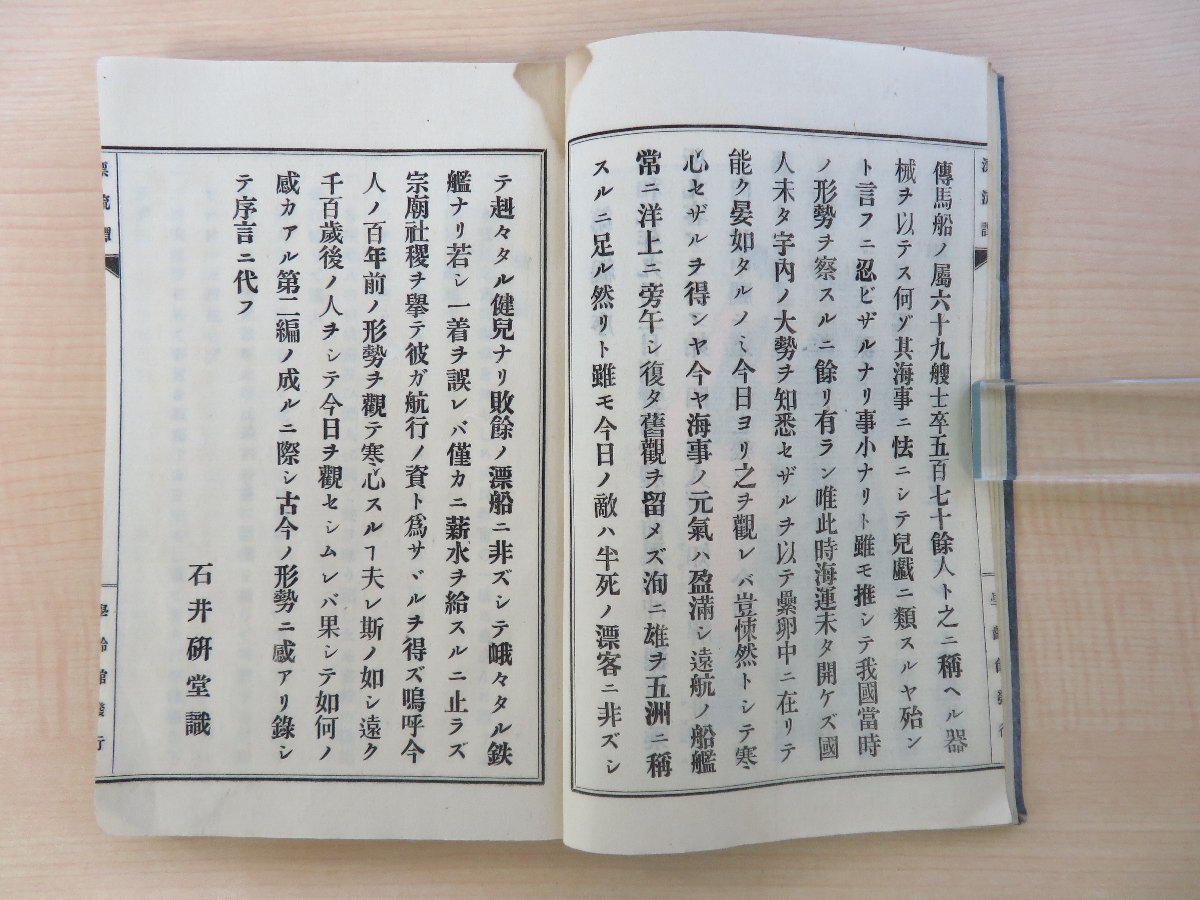 傳馬船ノ屬六十九艘士卒五百七十餘人ト之ニ稱ヘル器
械ヲ以テス何ゾ其海事ニ怯ニシテ兒戲ニ類スルヤ殆ン
ト言フニ忍ビザルナリ事小ナリト雖モ推シテ我國當時
ノ形勢ヲ察スルニ餘リ有ラン唯此時海運未タ開ケズ國
人未タ宇內ノ大勢ヲ知悉セザルヲ以テ纍卵中ニ在リテ
能ク晏如タルノミ今日ヨリ之ヲ觀レバ豈悚然トシテ寒
心セザルヲ得ンヤ今ヤ海事ノ元氣ハ盈滿シ遠航ノ船艦
常ニ洋上ニ旁午シ復タ舊觀ヲ留メズ洵ニ雄ヲ五洲ニ稱
スルニ足ル然リト雖モ今日ノ敵ハ半死ノ漂客ニ非ズシ
漂流譚
學齡館發行
テ赳々タル健兒ナリ敗餘ノ漂船ニ非ズシテ峨々タル鉄
艦ナリ若シ一着ヲ誤レバ僅カニ薪水ヲ給スルニ止ラズ
宗廟社稷ヲ擧テ彼ガ航行ノ資ト爲サヾルヲ得ズ嗚呼今
人ノ百年前ノ形勢ヲ觀テ寒心スルヿ夫レ斯ノ如シ遠ク
千百歲後ノ人ヲシテ今日ヲ觀セシムレバ果シテ如何ノ
感カアル第二編ノ成ルニ際シ古今ノ形勢ニ感アリ錄シ
テ序言ニ代フ
石井研堂識
漂流譚
學齡館發行